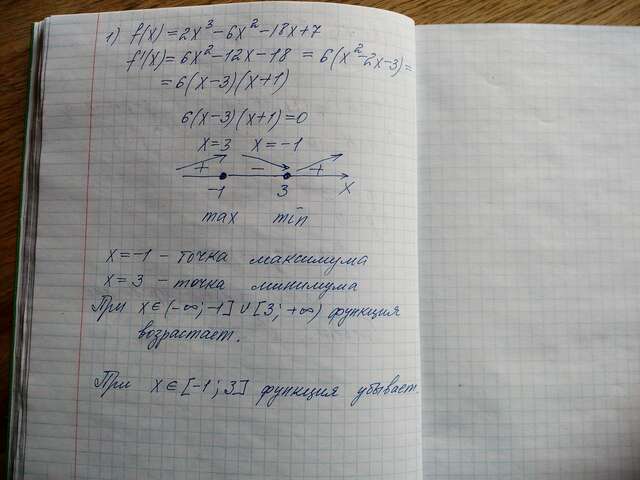 1) f(x) = 2x³ - 6x² - 18x + 7
f'(x) = 6x² - 12x - 18 = 6(x² - 2x - 3) =
= 6(x-3)(x+1)
6(x-3)(x+1) = 0
x = 3 x = -1
+ - +
-1 3 x
max min
x = -1 - точка максимума
x = 3 - точка минимума
При x ∈ (-∞; -1] ∪ [3; +∞) функция
возрастает.
При x ∈ [-1; 3] функция убывает.